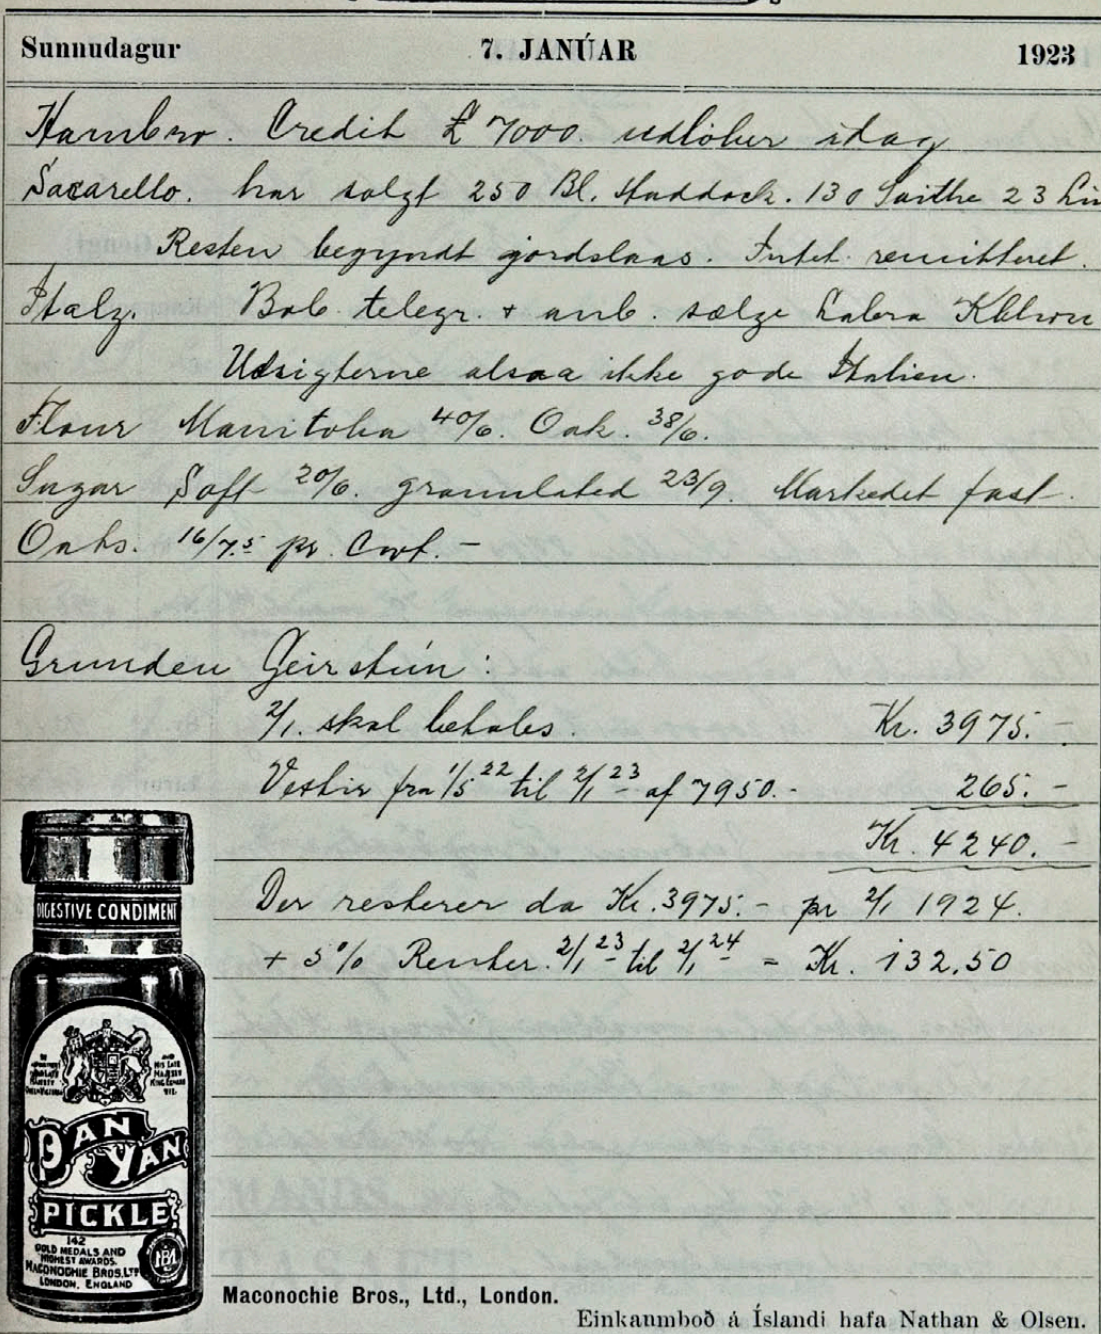 Sunnudagur 7. JANÚAR 1923
Hambro. Credit £ 7000. udlöber idag
Sacarello. har solgt 250 Bl. Haddock. 130 Saithe 23 Lin
Resten begyndt gjordslaas. Intet remitteret.
Italy. Bab. telegr. + anb. sælge Labra
Udsigterne alsaa ikke gode Italien.
Flour Manitoba 40/6. Oak. 38/6.
Sugar Soft 20/6. granulated 23/9. Markedet fast.
Oats. 16/7.5 pr. Cwt. –
Grunden Geirstún:
2/1. skal betales. Kr. 3975. –
fra 1/5 22 til 2/1 23 af 7950. - 265. –
Kr. 4240. –
Der resterer da Kr. 3975. – pr 2/1 1924.
+ 5% Renter. 2/1 23 til 2/1 24 = Kr. 132.50
DIGESTIVE CONDIMENT
PAN
YAN
PICKLE
142
GOLD MEDALS AND
HIGHEST AWARDS.
MACONOCHIE BROS. LTD
LONDON, ENGLAND
Maconochie Bros., Ltd., London.
Einkaumboð á Íslandi hafa Nathan & Olsen.